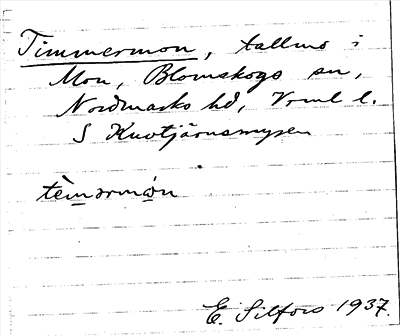 Timmermon, tallmo i
Mon, Blomskogs sn,
Nordmarks hd, Vrml l.
S Knotjärnsmysen
tèmərmòn
E. Silfors 1937.